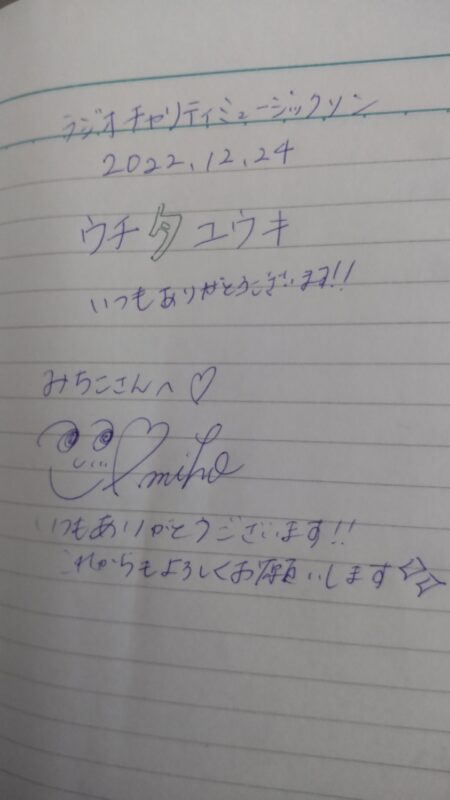 ラジオチャリティミュージックソン
2022.12.24
ウチタユウキ
いつもありがとうございます!!
みちこさんへ♡
miho
いつもありがとうございます!!
これからもよろしくお願いします